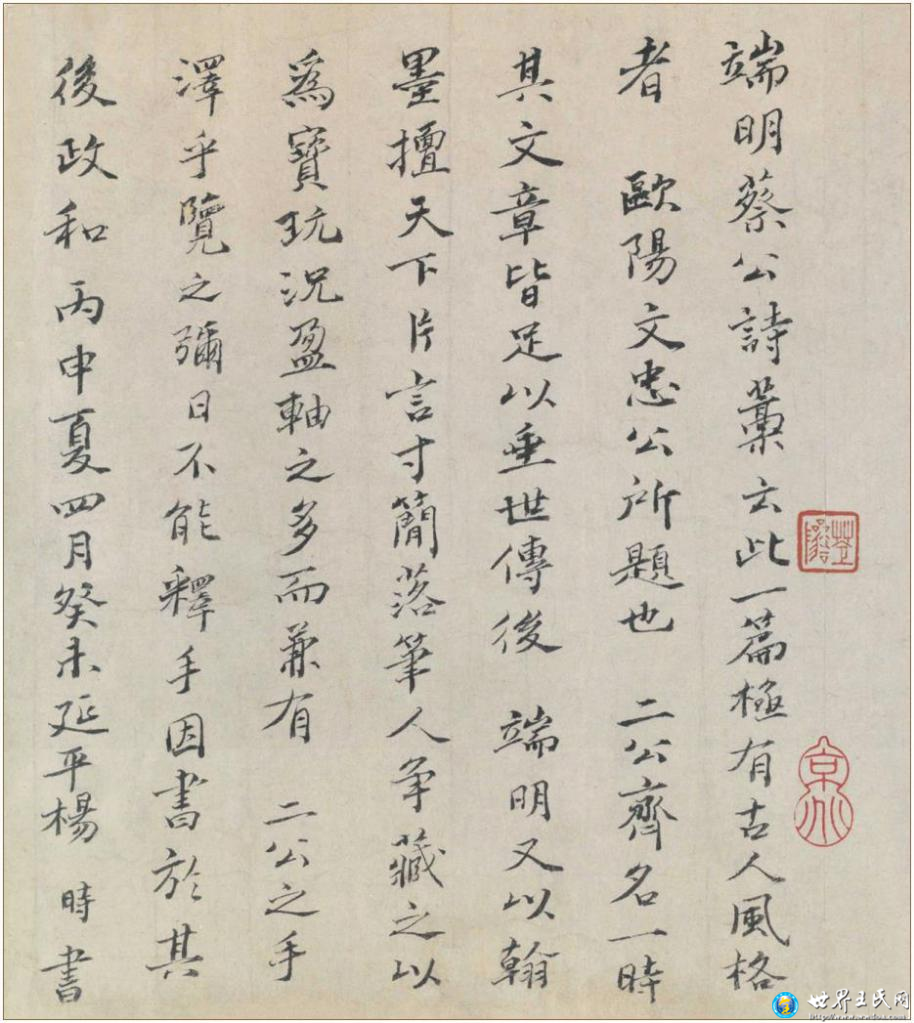 端明蔡公詩藁云此一篇極有古人風格
者 歐陽文忠公所題也 二公齊名一時
其文章皆足以垂世傳後 端明又以翰
墨擅天下片言寸簡落筆人争藏之以
爲寶玩況盈軸之多而兼有 二公之手
澤乎覽之彌日不能釋手因書於其
後政和丙申夏四月癸未延平楊 時書
世界王氏网